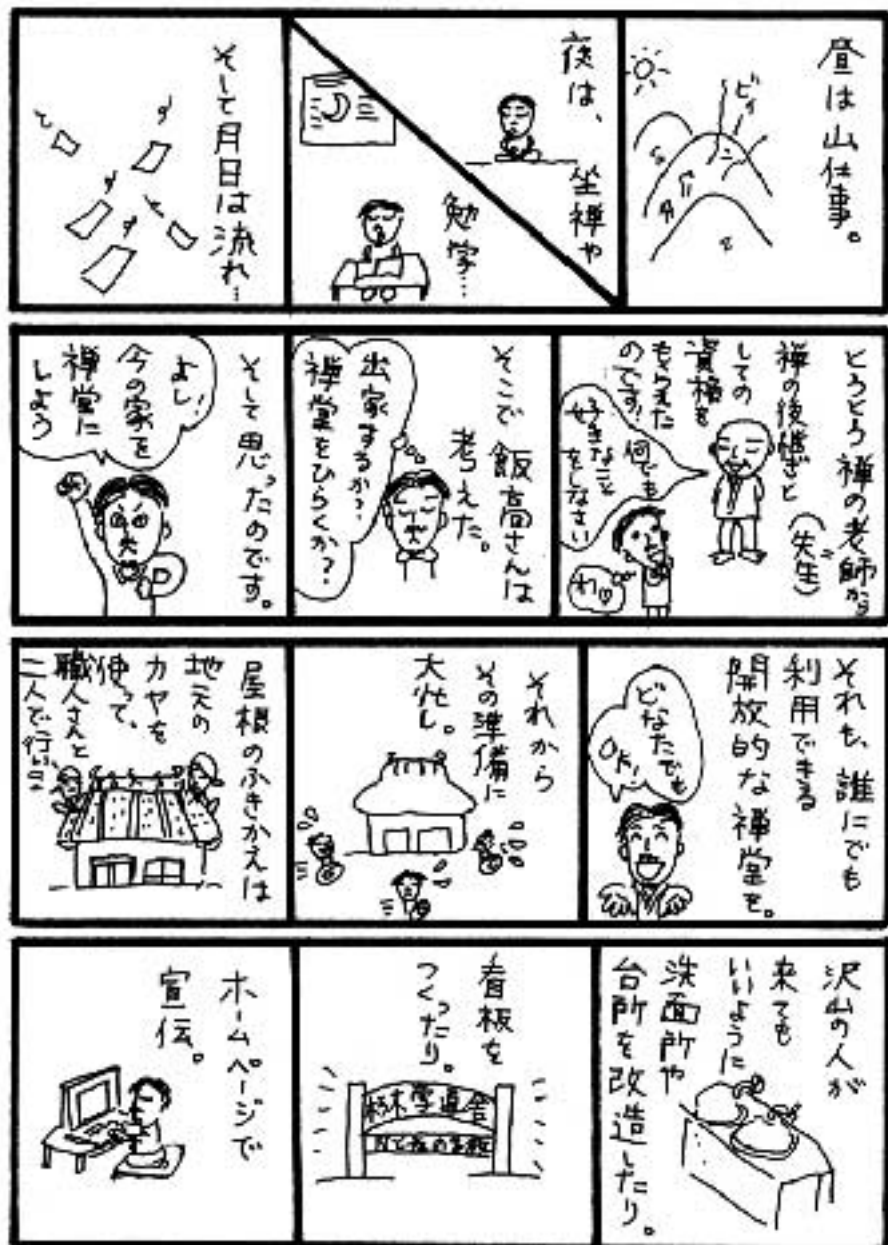 昼は山仕事。
ビィ
夜は、
坐禅や
勉学…
そして月日は流れ…
とうとう禅の老師から
(先生)
禅の後継ぎと
しての
資格を
もらえた
のです!
何でも
好きなこと
をしなさい
わ
そこで飯高さんは
考えた。
出家するか?
禅堂をひらくか?
そして思ったのです。
よし!
今の家を
禅堂に
しよう
それも、誰にでも
利用できる
開放的な禅堂を。
どなたでも
OK!
それから
その準備に
大忙し。
屋根のふきかえは
地元の
カヤを
使って、
職人さんと
二人で行い
沢山の人が
来ても
いいように
洗面所や
台所を改造したり。
看板を
つくったり。
朽木学道舎
ホームページで
宣伝。